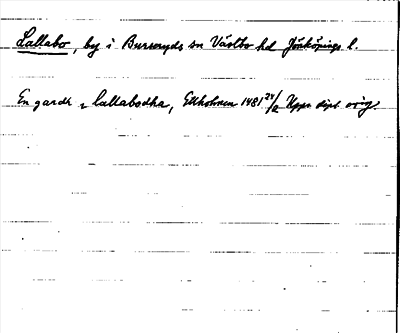 Lallabo, by i Burseryds sn Västbo hd Jönköpings l.
En gardh i lallabodha, Elleholmen 1481 24/2 Uppr. dipl. orig.